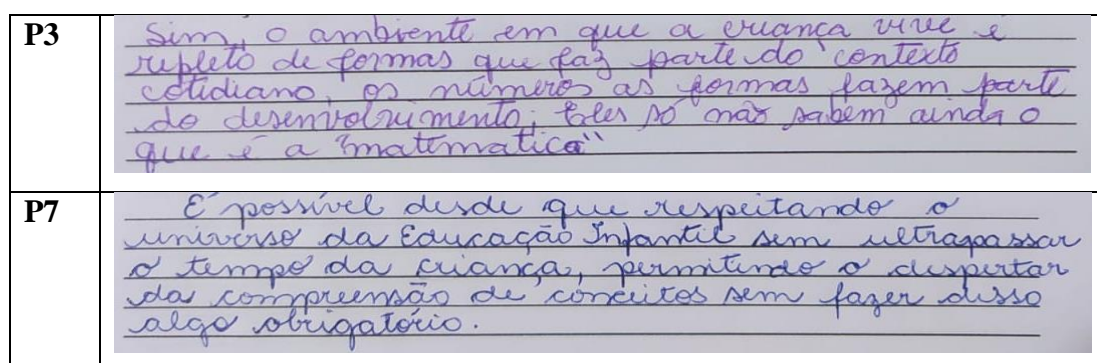 P3
Sim, o ambiente em que a criança vive é
repleto de formas que faz parte do contexto
cotidiano, os números as formas fazem parte
do desenvolvimento; Eles só não sabem ainda o
que é a "matematica"
P7
É possível desde que respeitando o
universo da Educação Infantil sem ultrapassar
o tempo da criança, permitindo o despertar
da compreensão de conceitos sem fazer disso
algo obrigatório.